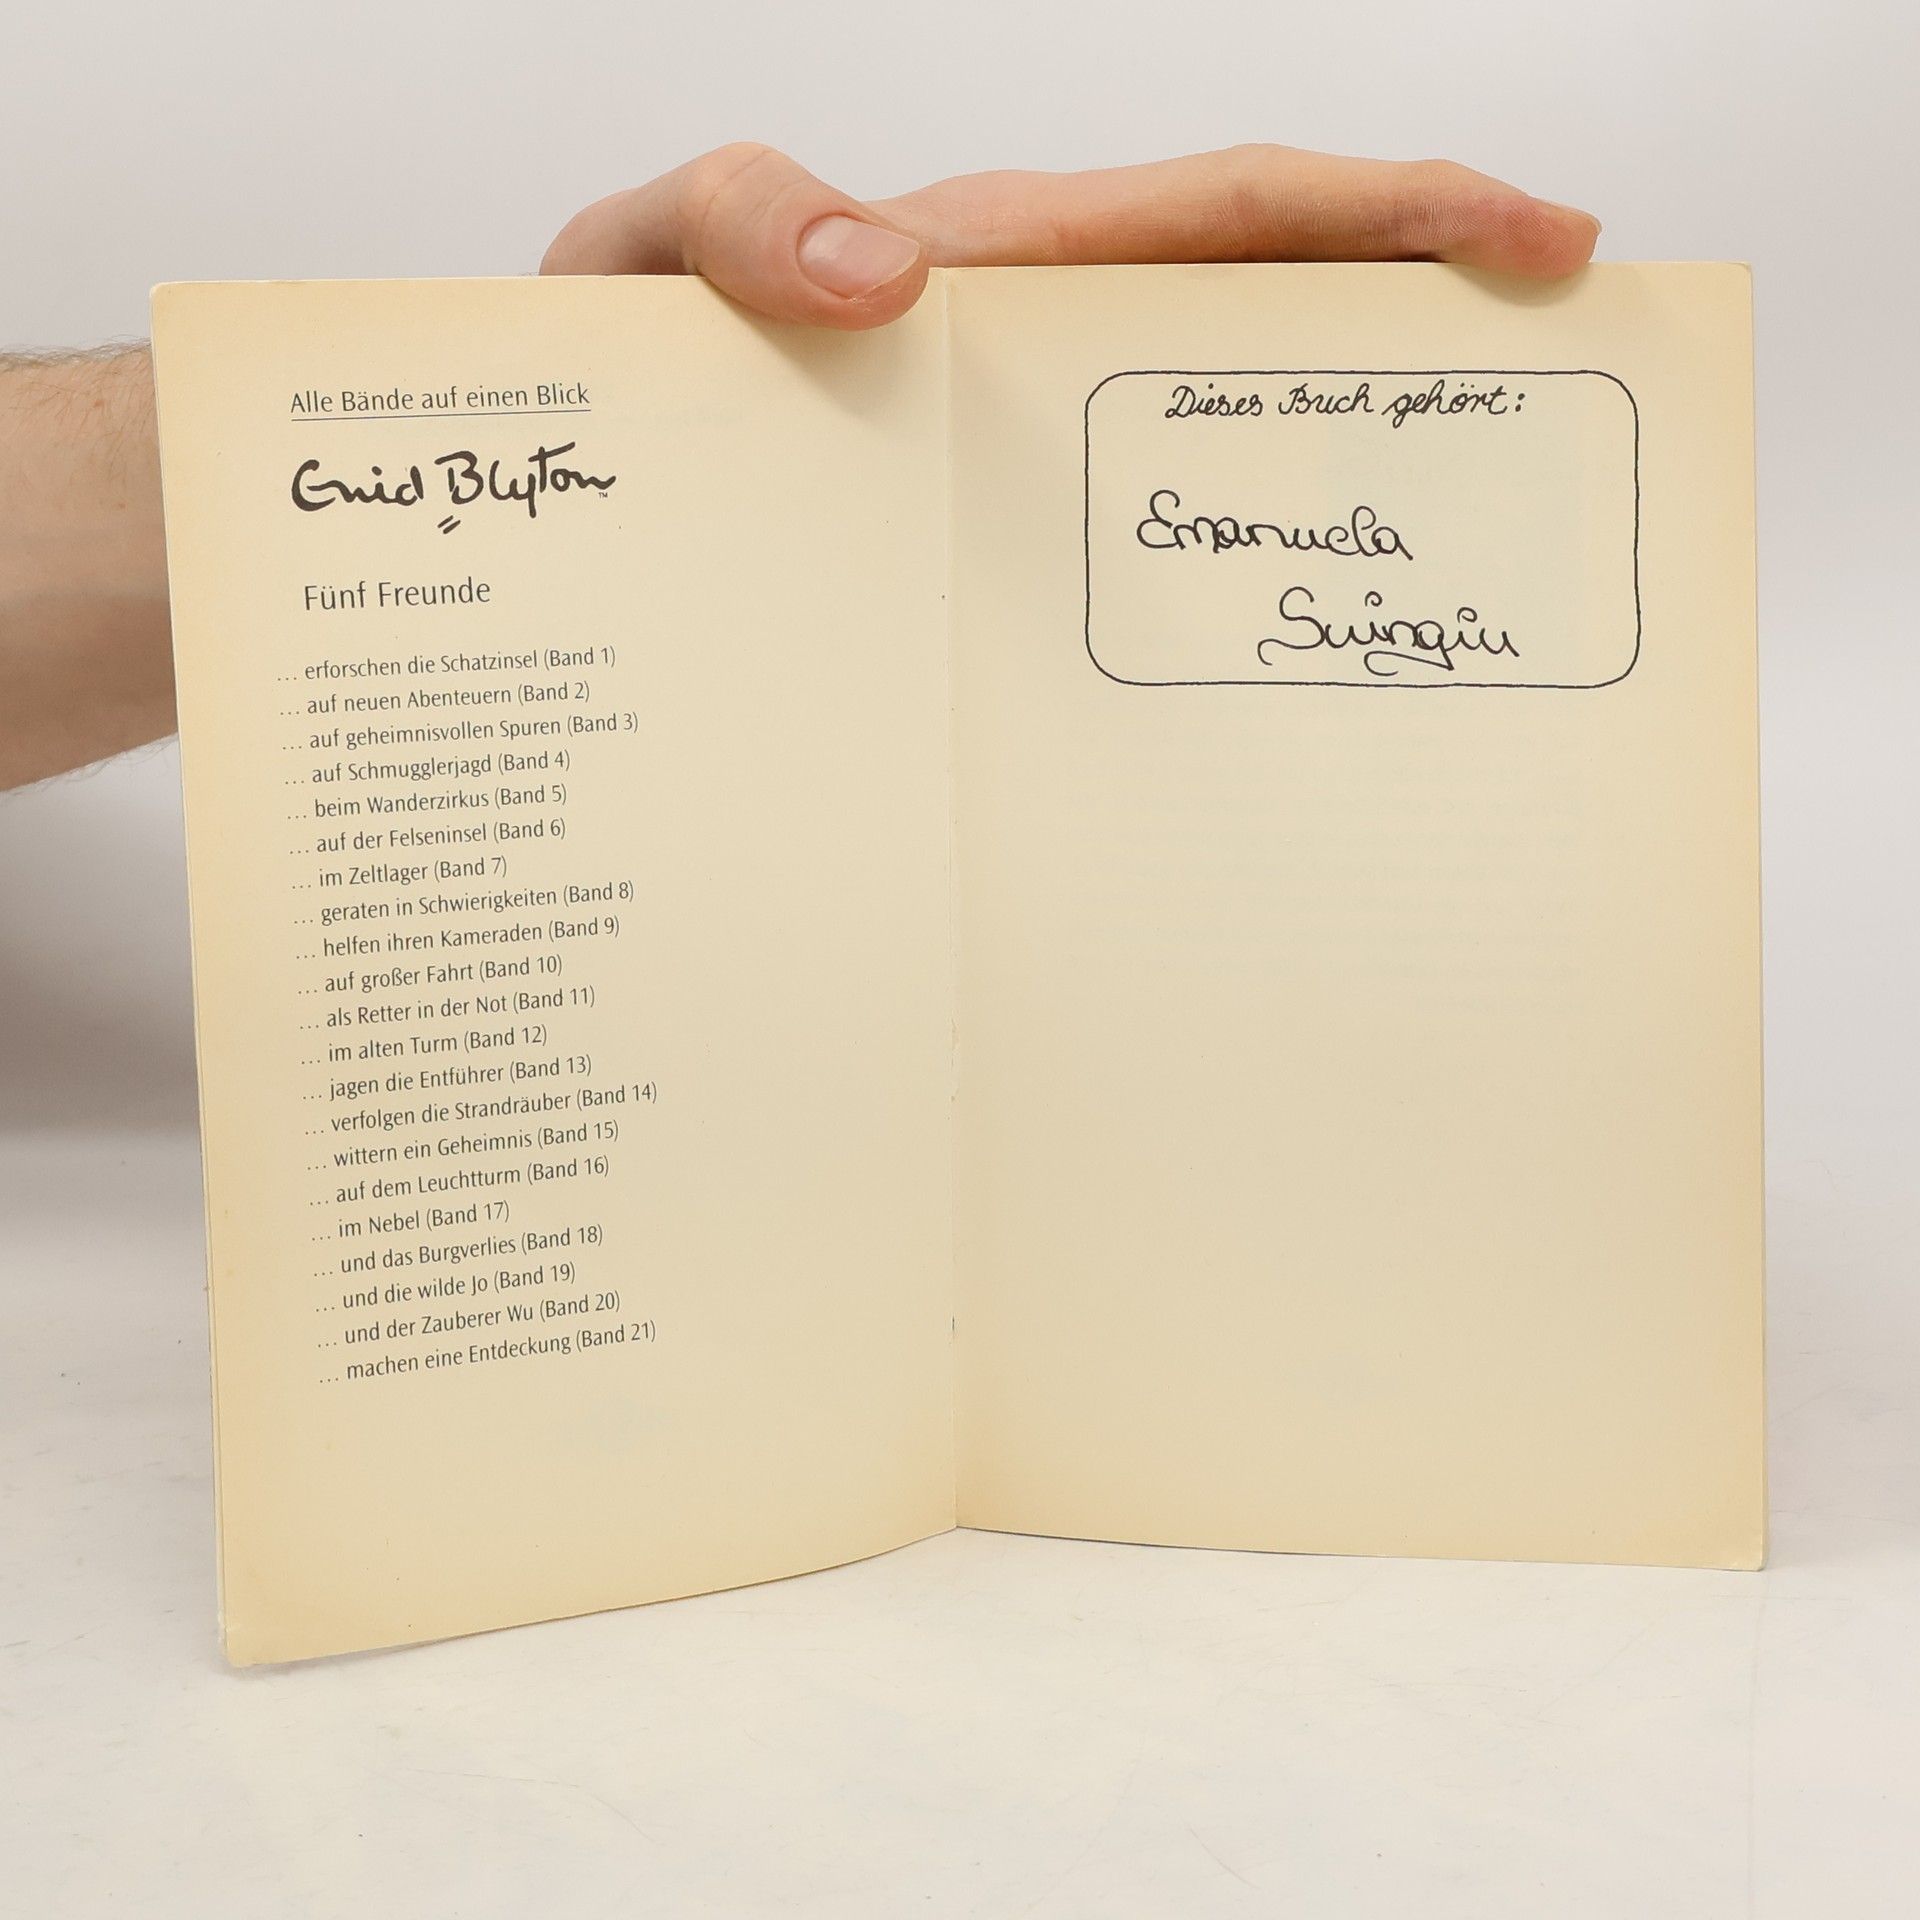 Alle Bände auf einen Blick
Enid Blyton™
Fünf Freunde
... erforschen die Schatzinsel (Band 1)
... auf neuen Abenteuern (Band 2)
... auf geheimnisvollen Spuren (Band 3)
... auf Schmugglerjagd (Band 4)
... beim Wanderzirkus (Band 5)
... auf der Felseninsel (Band 6)
... im Zeltlager (Band 7)
... geraten in Schwierigkeiten (Band 8)
... helfen ihren Kameraden (Band 9)
... auf großer Fahrt (Band 10)
... als Retter in der Not (Band 11)
... im alten Turm (Band 12)
... jagen die Entführer (Band 13)
... verfolgen die Strandräuber (Band 14)
... wittern ein Geheimnis (Band 15)
... auf dem Leuchtturm (Band 16)
... im Nebel (Band 17)
... und das Burgverlies (Band 18)
... und die wilde Jo (Band 19)
... und der Zauberer Wu (Band 20)
... machen eine Entdeckung (Band 21)
Dieses Buch gehört:
Emanuela